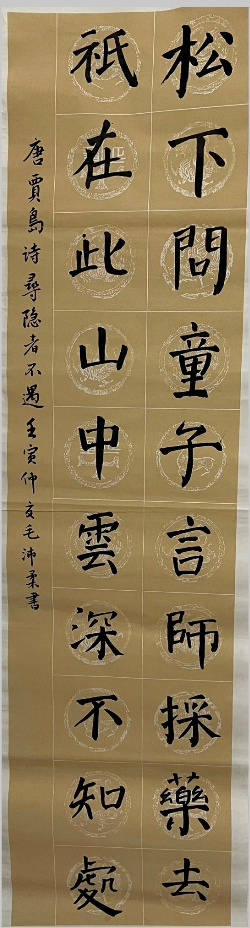 松下問童子言師採藥去
祇在此山中雲深不知處
唐賈島诗尋隐者不遇壬寅仲夏毛沛柔書